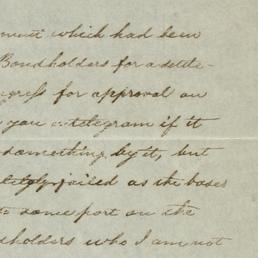 ment which had been
Bondholders for a settle-
ngress for approval on
you a telegram if it
something by it, but
failed as the bases
to some port on the
dholders who I am not